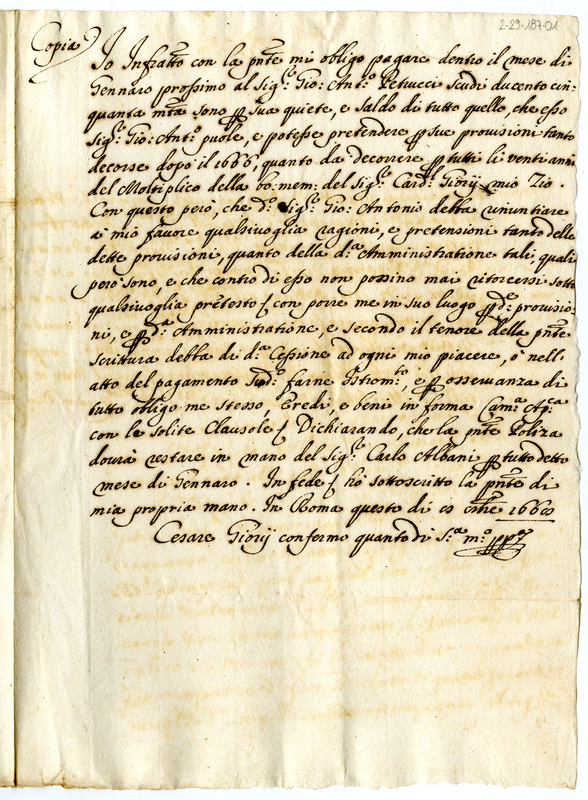 2-29-187-01
Copia
Io Infratto con la pnte mi obligo pagare dentro il mese di
Gennaro prossimo al Sigr. Gio: Anto. Petrucci scudi ducento cin-
quanta mta sono p sua quiete, e saldo di tutto quello, che esso
Sigr. Gio: Anto. puole, e potesse pretendere p sue provisioni tanto
decorse dopò il 1666, quanto da decorrere p tutti li venti anni
del Moltiplico della bo: mem: del Sigr. Cardl. Giorij mio Zio.
Con questo però, che do. Sigr. Gio: Antonio debba renuntiare
à mio favore qualsivoglia ragioni, e pretensioni tanto delle
dette provisioni, quanto della da. Amministratione tali, quali
però sono, e che contro di esso non possino mai ritorcersi sotto
qualsivoglia pretesto con porre me in suo luogo p de. provisio-
ni, e p da. Amministratione, e secondo il tenore della pnte
scrittura debba di da. Cessione ad ogni mio piacere, ò nell'
atto del pagamento farne Istromto., e p osservanza di
tutto obligo me stesso, Eredi, e beni in forma Cama. Apca.
con le solite Clausole Dichiarando, che la pnte Poliza
dourà restare in mano del Sigr. Carlo Albani p tutto detto
mese di Gennaro. In fede hò sottoscritto la pnte di
mia propria mano. In Roma questo di
Cesare Giorij confermo quanto di sa. mo. pp